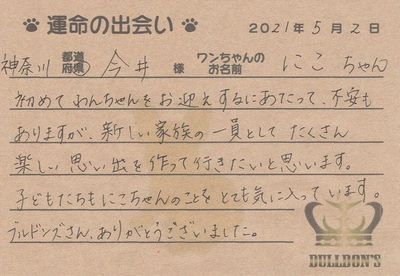 運命の出会い 2021年5月2日
神奈川 都道府県 今井 様 ワンちゃんのお名前 にこ ちゃん
初めてわんちゃんをお迎えするにあたって、不安も
ありますが、新しい家族の一員として たくさん
楽しい思い出を作って行きたいと思います。
子どもたちもにこちゃんのことをとても気に入っています。
ブルドンズさん、ありがとうございました。
BULLDON'S